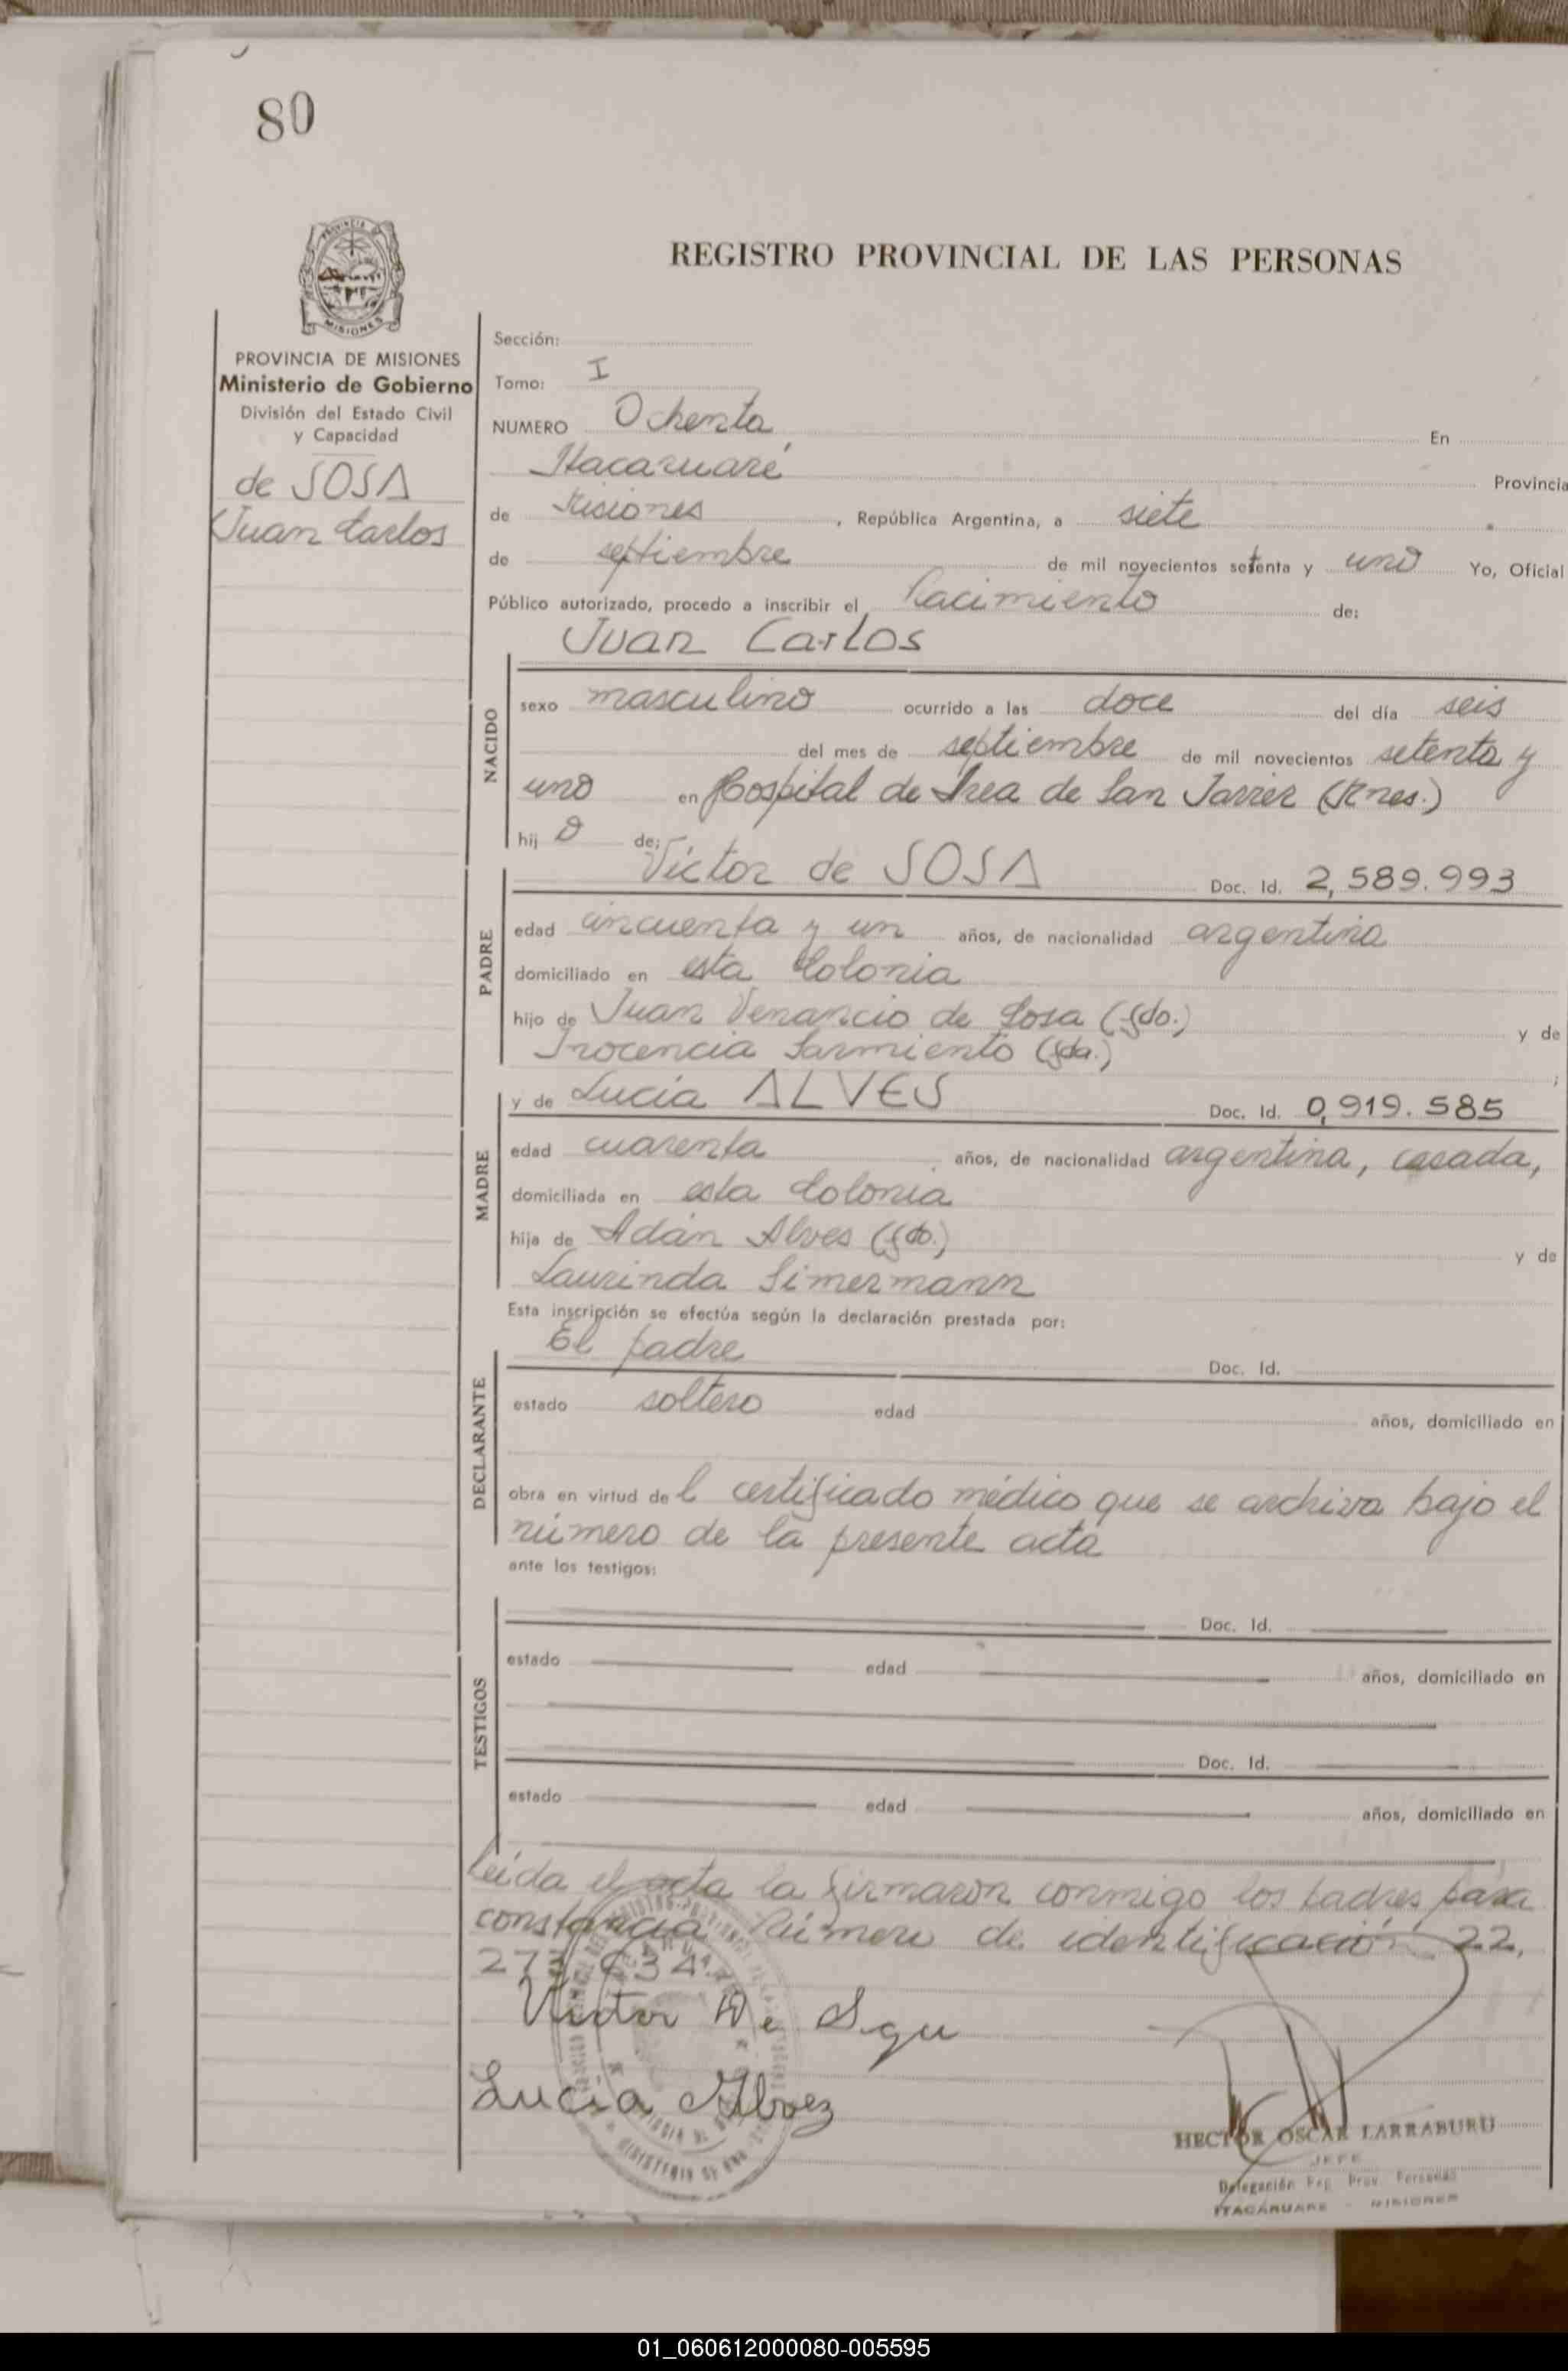 80
REGISTRO PROVINCIAL DE LAS PERSONAS
PROVINCIA DE
MISIONES
PROVINCIA DE MISIONES
Ministerio de Gobierno
División del Estado Civil
y Capacidad
de SOSA
Juan Carlos
Sección:
Tomo: I
NUMERO Ochenta En
Itacaruaré Provincia
de Misiones, República Argentina, a siete
de septiembre de mil novecientos setenta y uno Yo, Oficial
Público autorizado, procedo a inscribir el Nacimiento de:
Juan Carlos
NACIDO
sexo masculino ocurrido a las doce del día seis
del mes de septiembre de mil novecientos setenta y
uno en Hospital de Area de San Javier (Mnes.)
hij o de:
Víctor de SOSA Doc. Id. 2,589.993
PADRE
edad cincuenta y un años, de nacionalidad argentina
domiciliado en esta Colonia
hijo de Juan Venancio de Sosa (fdo.) y de
Inocencia Sarmiento (fda.) ;
MADRE
y de Lucía ALVES Doc. Id. 0,919.585
edad cuarenta años, de nacionalidad argentina, casada,
domiciliada en esta Colonia
hija de Adán Alves (fdo.) y de
Laurinda Simermann
Esta inscripción se efectúa según la declaración prestada por:
DECLARANTE
El padre Doc. Id.
estado soltero edad años, domiciliado en
obra en virtud de l certificado médico que se archiva bajo el
número de la presente acta
ante los testigos:
TESTIGOS
Doc. Id.
estado edad años, domiciliado en
Doc. Id.
estado edad años, domiciliado en
Leída el acta la firmaron conmigo los padres para
constancia Número de identificación 22.
Victor De
Lucia Alvez
HECTOR OSCAR LARRABURU
JEFE
Delegación Reg. Prov. Personas
ITACARUARE - MISIONES
01_060612000080-005595